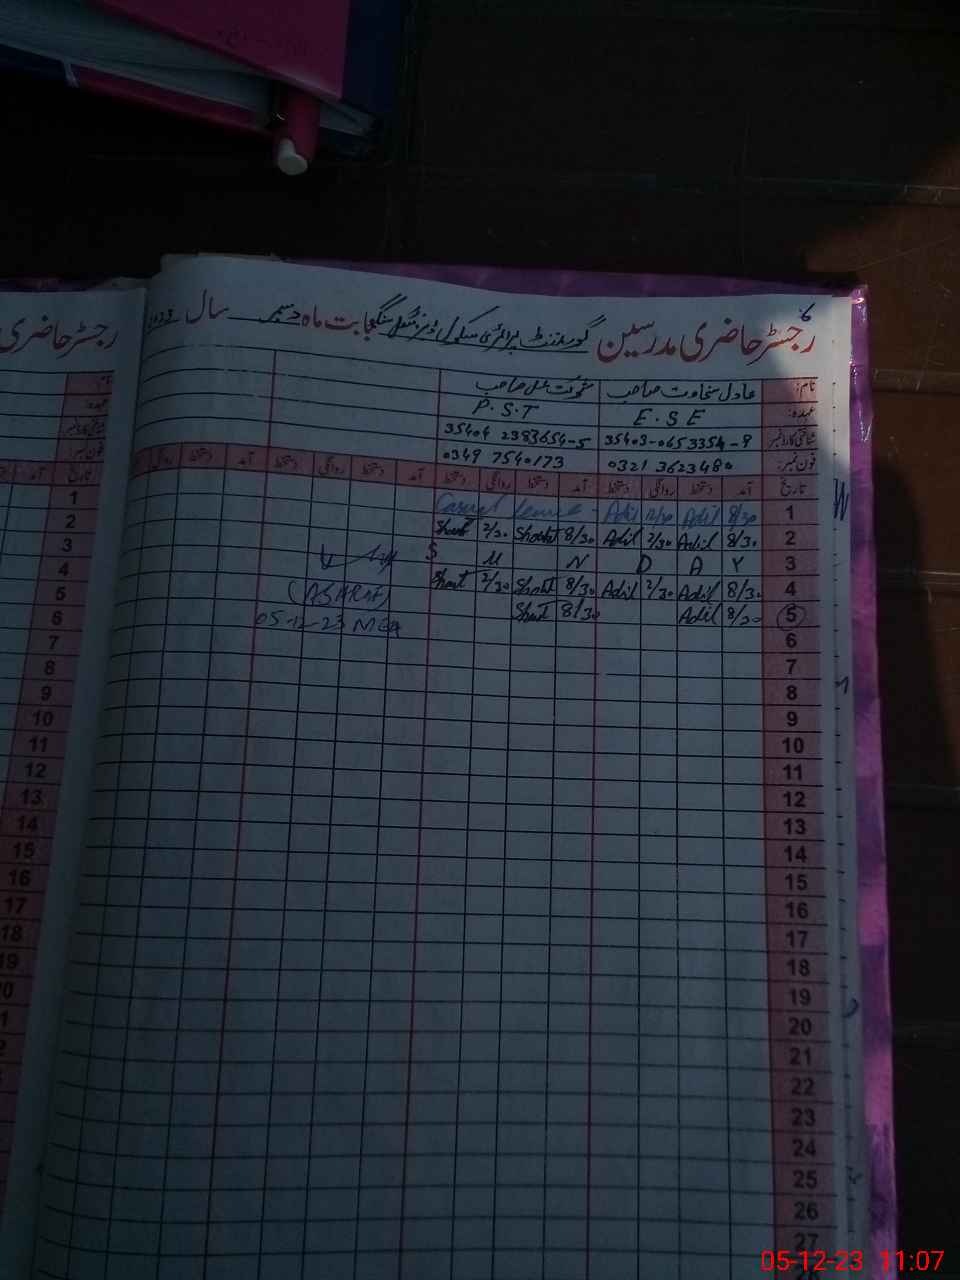 رجسٹر حاضری مدرسین گورنمنٹ پرائمری سکول بابت ماہ دسمبر سال 2023
نام: عادل سخاوت صاحب شوکت علی صاحب
عہدہ: E.S.E P.S.T
شناختی کارڈ نمبر 35403-0653354-9 35404 2383654-5
فون نمبر: 0321 3623480 0349 7540173
تاریخ آمد دستخط روانگی دستخط آمد دستخط روانگی دستخط آمد دستخط روانگی دستخط آمد دستخط روانگی
1 8/30 Adil 12/30 Adil Casual Leave
2 8/30 Adil 2/30 Adil 8/30 Shoukt 2/30
3 S U N D A Y
4 8/30 Adil 2/30 Adil 8/30 2/30
5 8/30 Adil 8/30
(ASHRAF)
6
05-12-23 MEA
7
8
9
10
11
12
13
14
15
16
17
18
19
20
21
22
23
24
25
26
27
رجسٹر حاضری
نام:
عہدہ:
شناختی کارڈ نمبر
فون نمبر:
تاریخ آمد
1
2
3
4
5
6
7
8
9
10
11
12
13
14
15
16
17
18
05-12-23 11:07